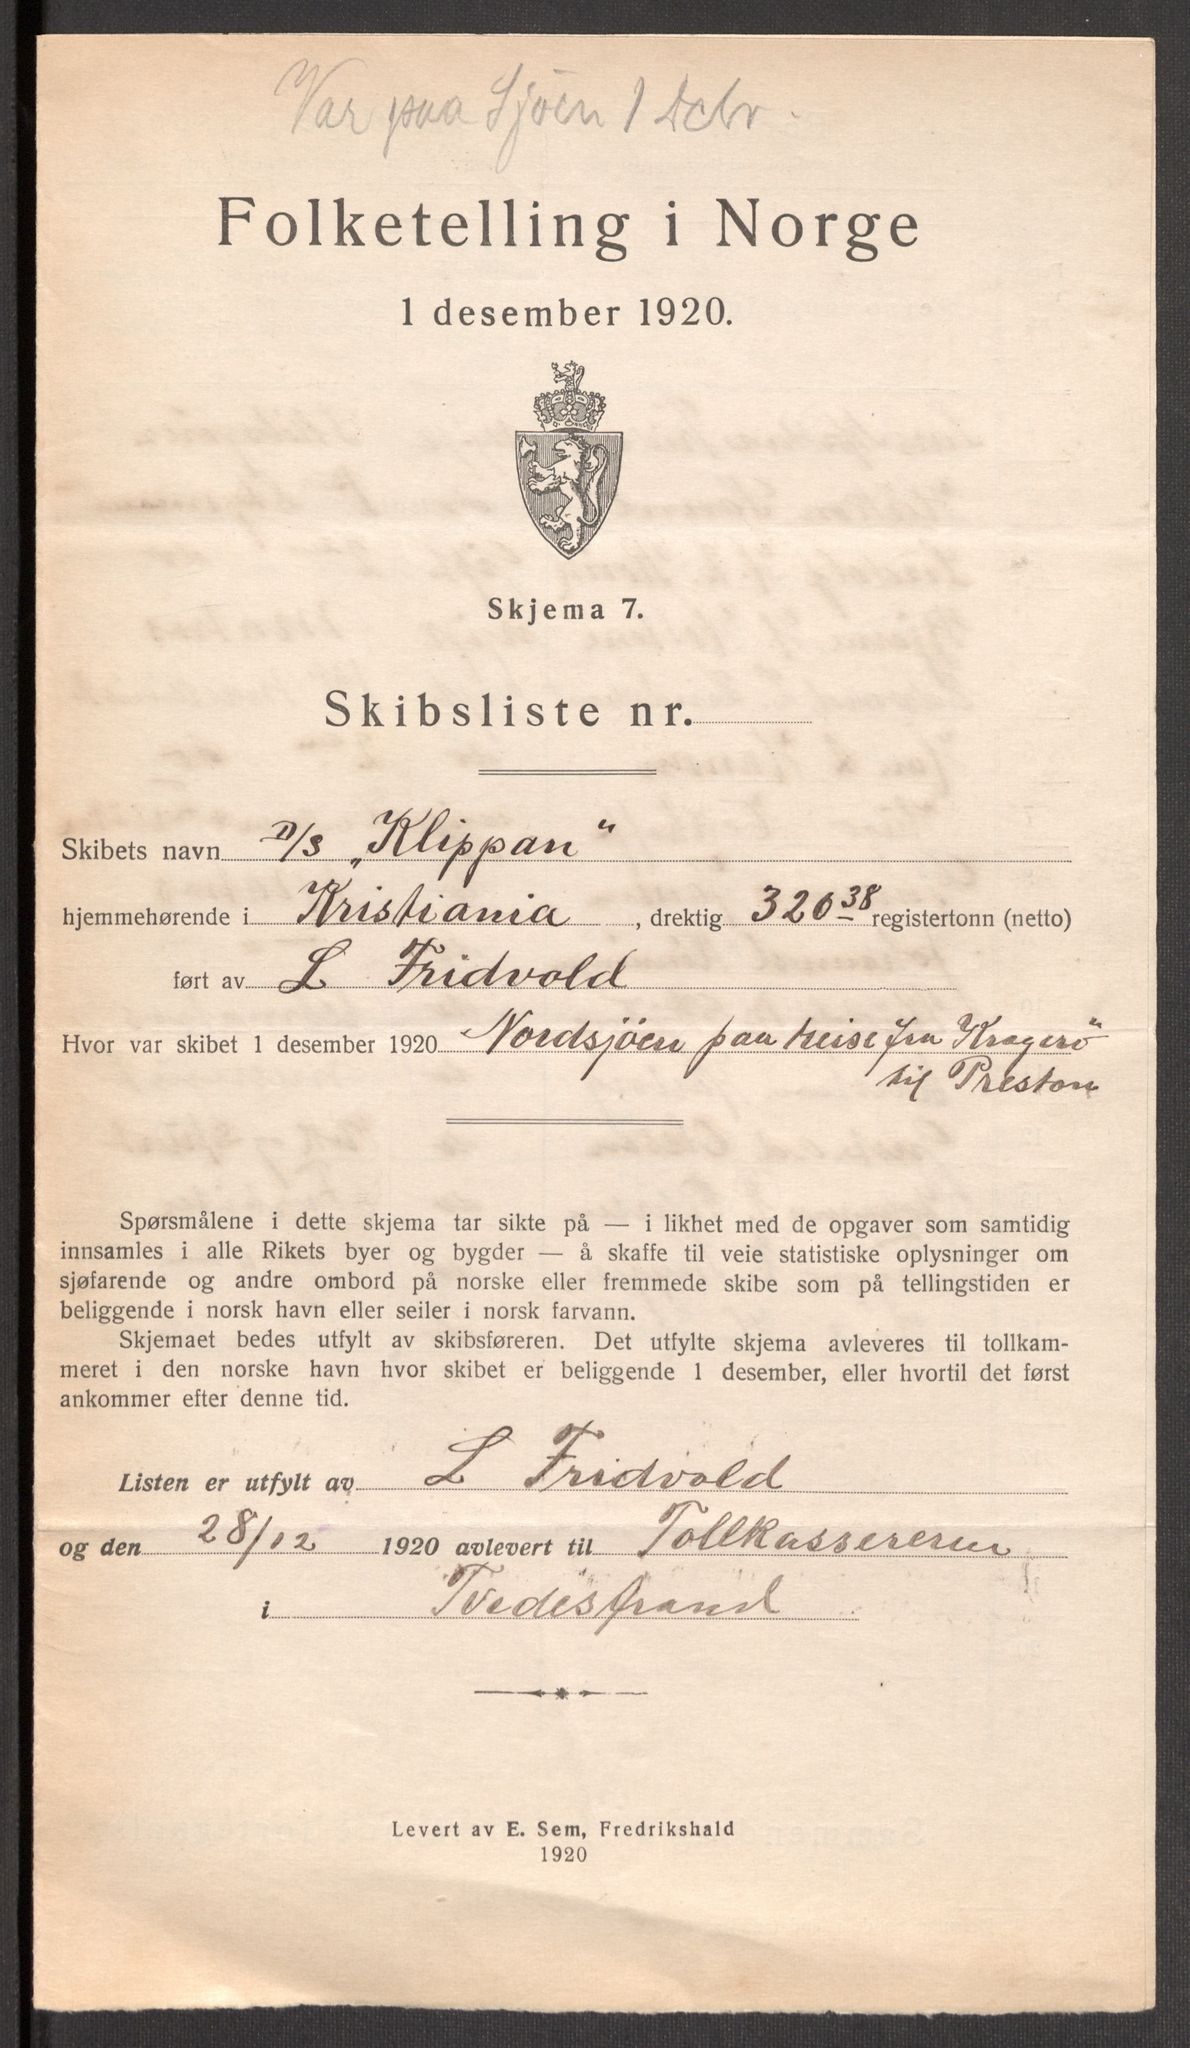 Var paa Sjöen 1 Dcbr.
Folketelling i Norge
1 desember 1920.
Skjema 7.
Skibsliste nr.
Skibets navn D/S „Klippan"
hjemmehørende i Kristiania, drektig 320 38 registertonn (netto)
ført av L Fridvold
Hvor var skibet 1 desember 1920 Nordsjöen paa reise fra Kragerö
til Preston
Spørsmålene i dette skjema tar sikte på — i likhet med de opgaver som samtidig
innsamles i alle Rikets byer og bygder — å skaffe til veie statistiske oplysninger om
sjøfarende og andre ombord på norske eller fremmede skibe som på tellingstiden er
beliggende i norsk havn eller seiler i norsk farvann.
Skjemaet bedes utfylt av skibsføreren. Det utfylte skjema avleveres til tollkam-
meret i den norske havn hvor skibet er beliggende 1 desember, eller hvortil det først
ankommer efter denne tid.
Listen er utfylt av L Fridvold
og den 28/12 1920 avlevert til Tollkassereren
i Tvedestrand
Levert av E. Sem, Fredrikshald
1920